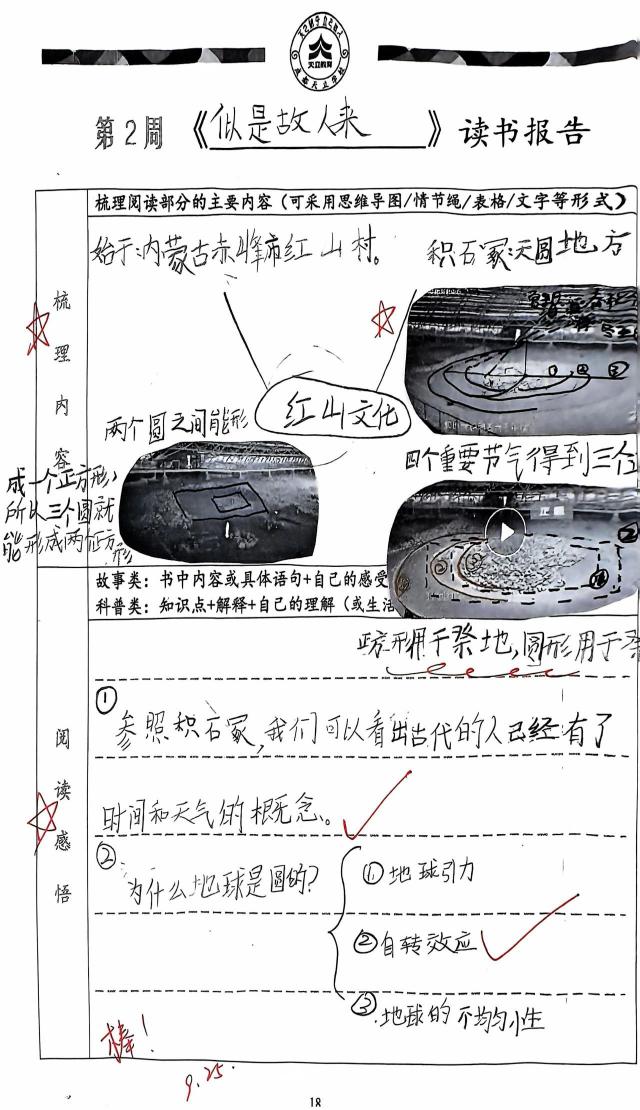 天立教育
成都天立学校
第2周《似是故人来》读书报告
梳理内容
梳理阅读部分的主要内容（可采用思维导图/情节绳/表格/文字等形式）
始于:内蒙古赤峰市红山村。
积石冢:天圆地方
红山文化
两个圆之间能形
成一个正方形，
所以三个圆就
能形成两个正方形
四个重要节气得到三个
① ② ③
故事类：书中内容或具体语句+自己的感受
科普类：知识点+解释+自己的理解（或生活
正方形用于祭地,圆形用于祭
阅读感悟
①
参照积石冢,我们可以看出古代的人已经有了
时间和天气的概念。
②
为什么地球是圆的?
①地球引力
②自转效应
③地球的不均匀性
棒!
9.25.
18